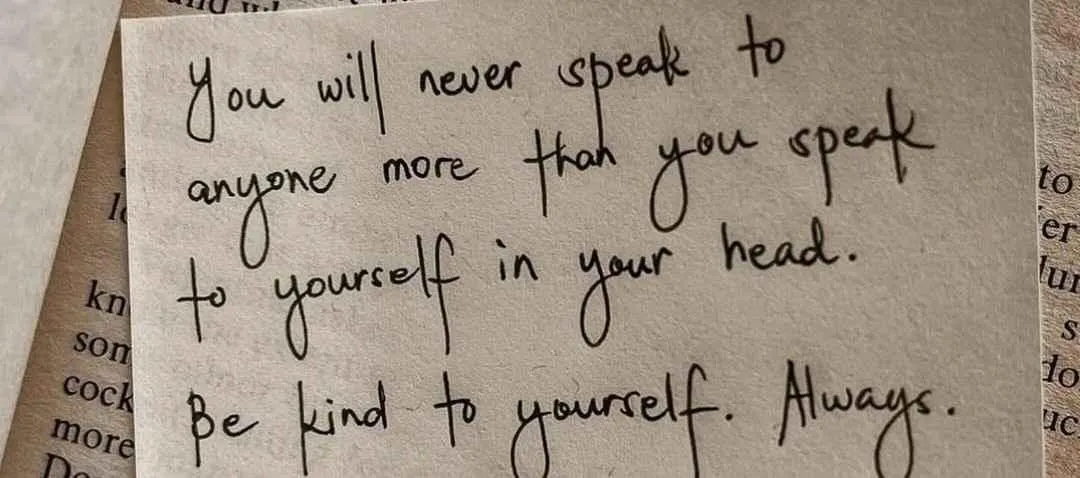 You will never speak to
anyone more than you speak
to yourself in your head.
Be kind to yourself. Always.
to
er
kn
som
cock
more
s
do
uc